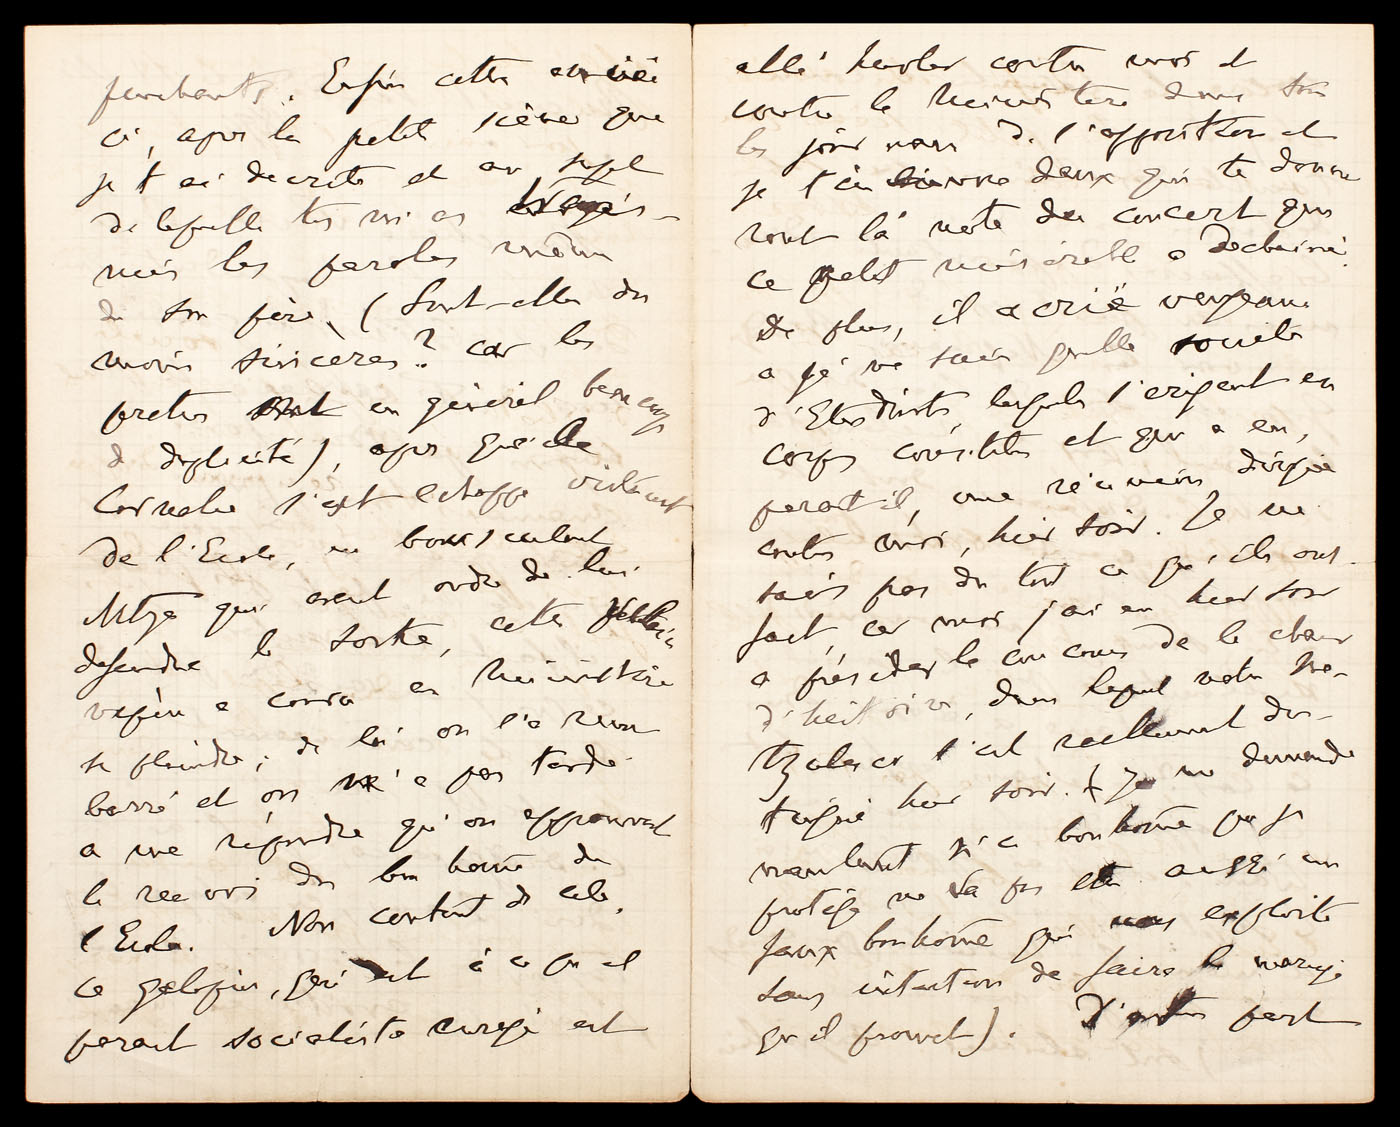 penchants. Enfin cette année
ci, après la petite scène que
je t'ai décrite et au sujet
de laquelle tu m'as
mis les paroles même
de son père, (sont-elles du
moins sincères? car les
pretres ont en général beaucoup
de duplicité), après que le
Cornelu s'est échappé violement
de l'Ecole, en bousculant
qui avait ordre de lui
defendre la sortie, cette
a couru au Ministère
se plaindre; de là on l'a
et on m'a pas tardé
a me répondre qu'on approuvait
le renvoi du bon home de
l'Ecole. Non content de cela,
ce galopin, qui est à ce qu'il
parait socialiste enragé est
allé hurler contre moi et
contre le Ministère dans tous
les journaux de l'opposition et
je t'en donne deux qui te donne
ront la note du concert que
ce petit misérable a dechainé.
De plus, il a crié vengeance
a je ne sais quelle société
d'Etudiants, lesquels s'érigent en
corps constitués et qui a eu,
parait-il, une réunion, dirigée
contre moi, hier soir. Je ne
sais pas du tout ce qu'ils ont
fait, car moi j'ai eu hier soir
a présider le concours de la chaire
d'histoire, dans lequel notre
s'est reellement dis-
tingué hier soir. (Je me demande
maintenant si ce bonhome que je
protège ne va pas etre aussi un
faux bonhome qui nous exploite
sans intention de faire le mariage
qu'il promet). D'autre part